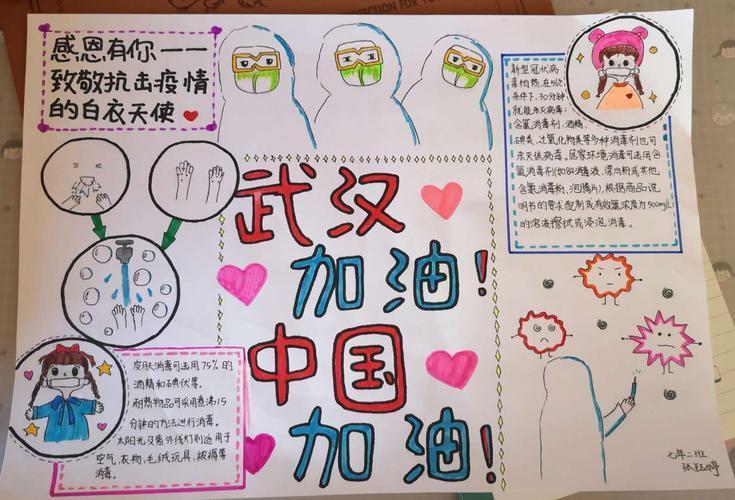 感恩有你——
致敬抗击疫情
的白衣天使
武汉
加油!
中国
加油!
新型冠状病
毒怕热,在56℃
条件下,30分钟
就能杀灭病毒;
含氯消毒剂,酒精,
碘类、过氧化物类等多种消毒剂也可
杀灭该病毒。居家环境消毒可选用含
氯消毒剂(如84消毒液、漂白粉或其他
含氯消毒粉、泡腾片),根据商品说
明书的要求配制成有效氯浓度为500mg/L
的溶液擦拭或浸泡消毒。
皮肤消毒可选用75%的
酒精和碘伏等。
耐热物品可采用煮沸15
分钟的方法进行消毒。
太阳光及紫外线灯则适用于
空气、衣物、毛绒玩具、被褥等
消毒。
七年二班
张
婷